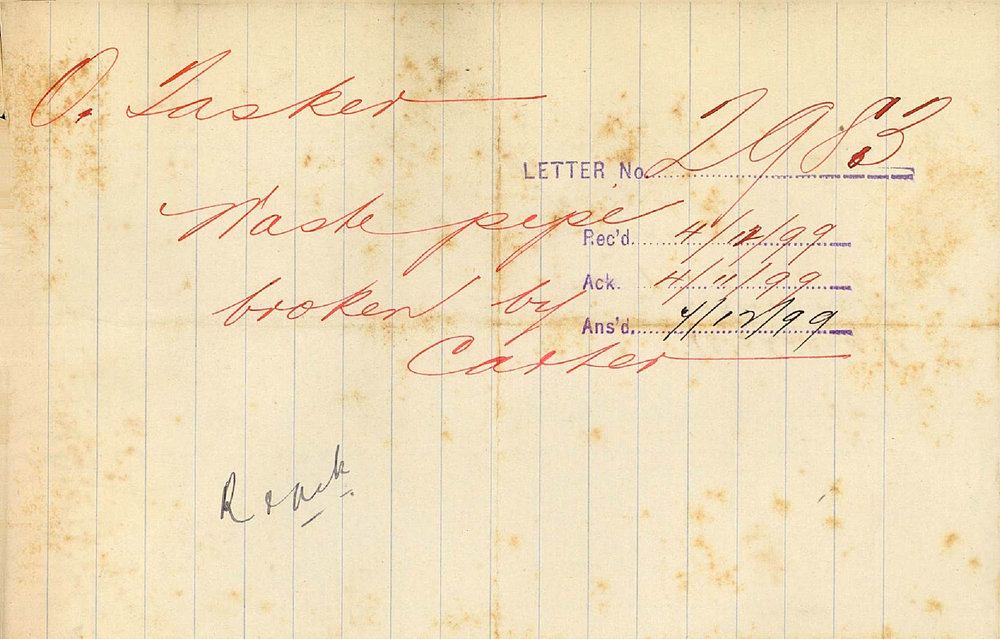 O. Tasker
LETTER No. 2983
Waste pipe
Rec'd. 4/12/99
broken by
Ack. 4/11/99
Ans'd. 4/12/99
Carter